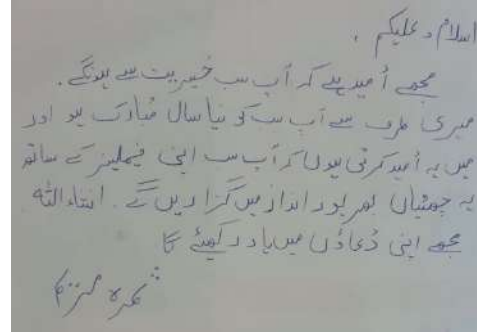 اسلام و علیکم ،
مجھے اُمید ہے کہ آپ سب خیریت سے ہونگے ۔
میری طرف سے آپ سب کو نیا سال مُبارک ہو اور
میں یہ اُمید کرتی ہوں کہ آپ سب اپنی فیملیز کے ساتھ
یہ چھٹیاں بھرپور انداز میں گزاریں گے ۔ انشاء اللہ
مجھے اپنی دُعاؤں میں یاد رکھیئے گا